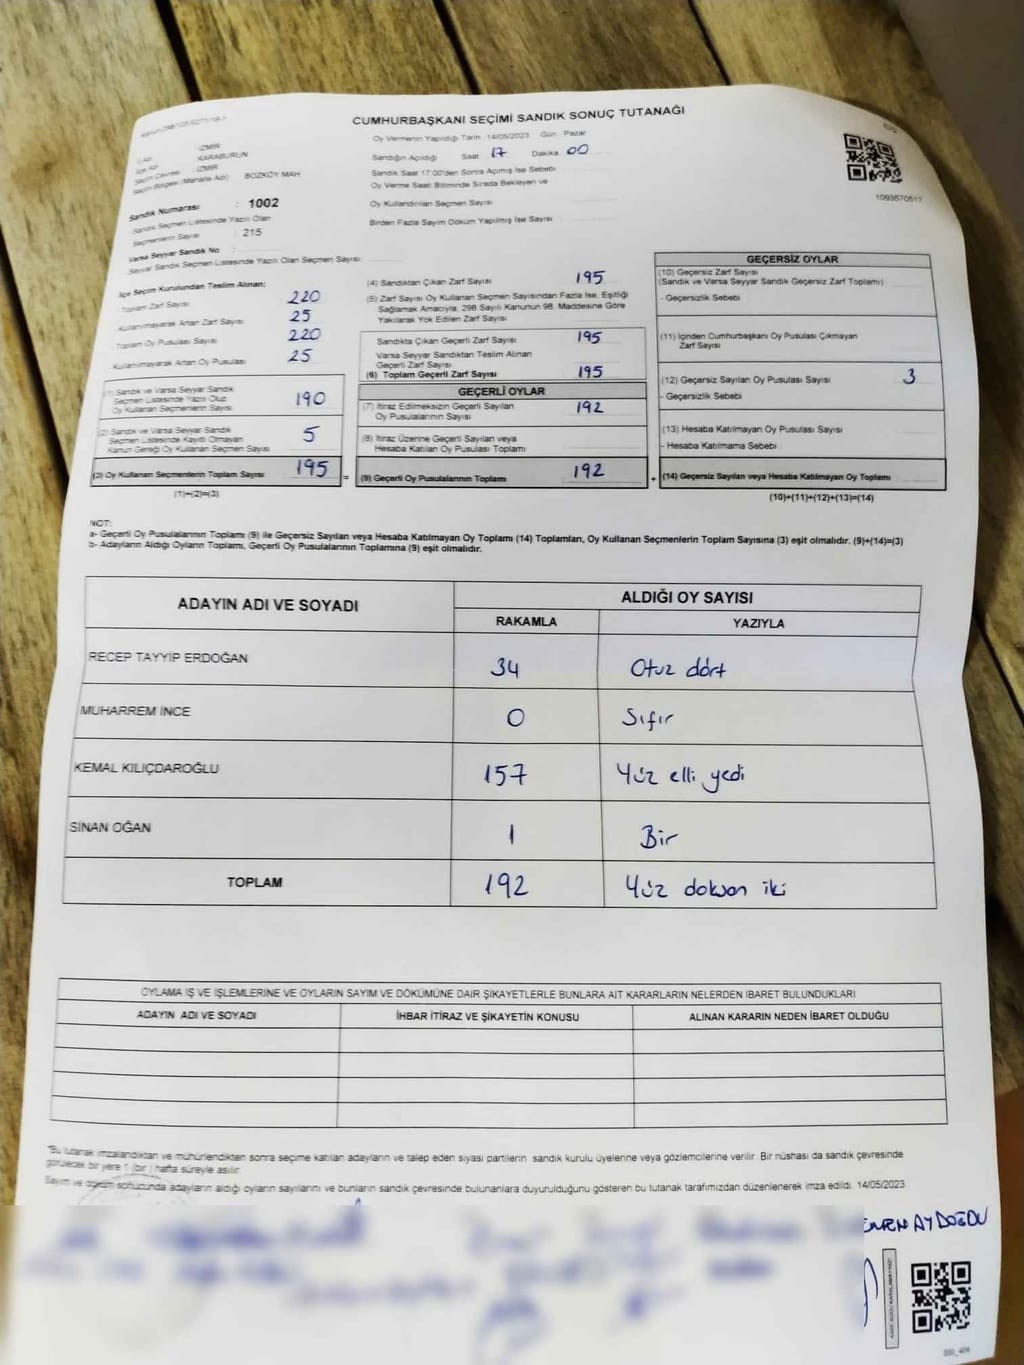 CUMHURBAŞKANI SEÇİMİ SANDIK SONUÇ TUTANAĞI
Oy Vermenin Yapıldığı Tarih 14/05/2023 Gün Pazar
İZMİR
KARABURUN
Sandığın Açıldığı Saat 17 Dakika 00
Seçim Çevresi : İZMİR
Seçim Bölgesi (Mahalle Adı) BOZKÖY MAH.
Sandık Saat 17:00'den Sonra Açılmış İse Sebebi
Oy Verme Saati Bitiminde Sırada Bekleyen ve
Oy Kullandırılan Seçmen Sayısı
1093570517
Sandık Numarası : 1002
Birden Fazla Sayım Döküm Yapılmış İse Sayısı
Sandık Seçmen Listesinde Yazılı Olan
Seçmenlerin Sayısı : 215
Varsa Seyyar Sandık No
Seyyar Sandık Seçmen Listesinde Yazılı Olan Seçmen Sayısı
İlçe Seçim Kurulundan Teslim Alınan;
Toplam Zarf Sayısı 220
Kullanılmayarak Artan Zarf Sayısı 25
Toplam Oy Pusulası Sayısı 220
Kullanılmayarak Artan Oy Pusulası 25
(1) Sandık ve Varsa Seyyar Sandık
Seçmen Listesinde Yazılı Olup
Oy Kullanan Seçmenlerin Sayısı 190
(2) Sandık ve Varsa Seyyar Sandık
Seçmen Listesinde Kayıtlı Olmayan
Kanun Gereği Oy Kullanan Seçmen Sayısı 5
(3) Oy Kullanan Seçmenlerin Toplam Sayısı 195 =
(1)+(2)=(3)
(4) Sandıktan Çıkan Zarf Sayısı 195
(5) Zarf Sayısı Oy Kullanan Seçmen Sayısından Fazla İse, Eşitliği
Sağlamak Amacıyla, 298 Sayılı Kanunun 98. Maddesine Göre
Yakılarak Yok Edilen Zarf Sayısı
Sandıkta Çıkan Geçerli Zarf Sayısı 195
Varsa Seyyar Sandıktan Teslim Alınan
Geçerli Zarf Sayısı
(6) Toplam Geçerli Zarf Sayısı 195
GEÇERLİ OYLAR
(7) İtiraz Edilmeksizin Geçerli Sayılan
Oy Pusulalarının Sayısı 192
(8) İtiraz Üzerine Geçerli Sayılan veya
Hesaba Katılan Oy Pusulası Toplamı
(9) Geçerli Oy Pusulalarının Toplamı 192 +
GEÇERSİZ OYLAR
(10) Geçersiz Zarf Sayısı
(Sandık ve Varsa Seyyar Sandık Geçersiz Zarf Toplamı)
- Geçersizlik Sebebi
(11) İçinden Cumhurbaşkanı Oy Pusulası Çıkmayan
Zarf Sayısı
(12) Geçersiz Sayılan Oy Pusulası Sayısı 3
- Geçersizlik Sebebi
(13) Hesaba Katılmayan Oy Pusulası Sayısı
- Hesaba Katılmama Sebebi
(14) Geçersiz Sayılan veya Hesaba Katılmayan Oy Toplamı
(10)+(11)+(12)+(13)=(14)
NOT:
a- Geçerli Oy Pusulalarının Toplamı (9) ile Geçersiz Sayılan veya Hesaba Katılmayan Oy Toplamı (14) Toplamları, Oy Kullanan Seçmenlerin Toplam Sayısına (3) eşit olmalıdır. (9)+(14)=(3)
b- Adayların Aldığı Oyların Toplamı, Geçerli Oy Pusulalarının Toplamına (9) eşit olmalıdır.
ADAYIN ADI VE SOYADI
ALDIĞI OY SAYISI
RAKAMLA YAZIYLA
RECEP TAYYİP ERDOĞAN 34 Otuz dört
MUHARREM İNCE 0 Sıfır
KEMAL KILIÇDAROĞLU 157 Yüz elli yedi
SİNAN OĞAN 1 Bir
TOPLAM 192 Yüz doksan iki
OYLAMA İŞ VE İŞLEMLERİNE VE OYLARIN SAYIM VE DÖKÜMÜNE DAİR ŞİKAYETLERLE BUNLARA AİT KARARLARIN NELERDEN İBARET BULUNDUKLARI
ADAYIN ADI VE SOYADI İHBAR İTİRAZ VE ŞİKAYETİN KONUSU ALINAN KARARIN NEDEN İBARET OLDUĞU
*Bu tutanak imzalandıktan ve mühürlendikten sonra seçime katılan adayların ve talep eden siyasi partilerin sandık kurulu üyelerine veya gözlemcilerine verilir. Bir nüshası da sandık çevresinde
görülecek bir yere 1 (bir) hafta süreyle asılır.
Sayım ve döküm sonucunda adayların aldığı oyların sayılarını ve bunların sandık çevresinde bulunanlara duyurulduğunu gösteren bu tutanak tarafımızdan düzenlenerek imza edildi. 14/05/2023
AYDOĞDU